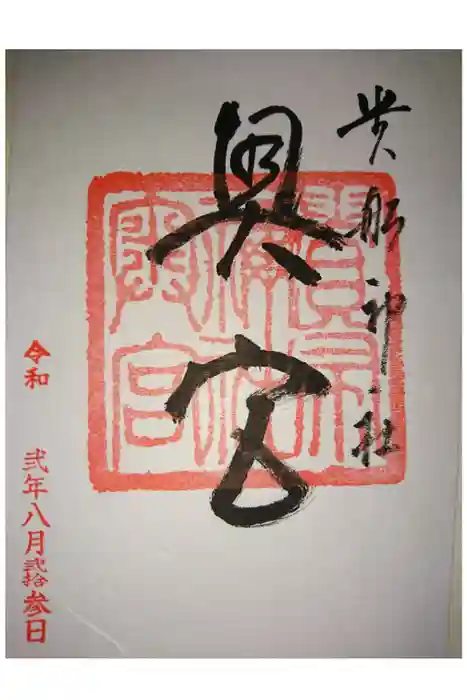 貴船神社
奥宮
令和 弐年八月弐拾参日